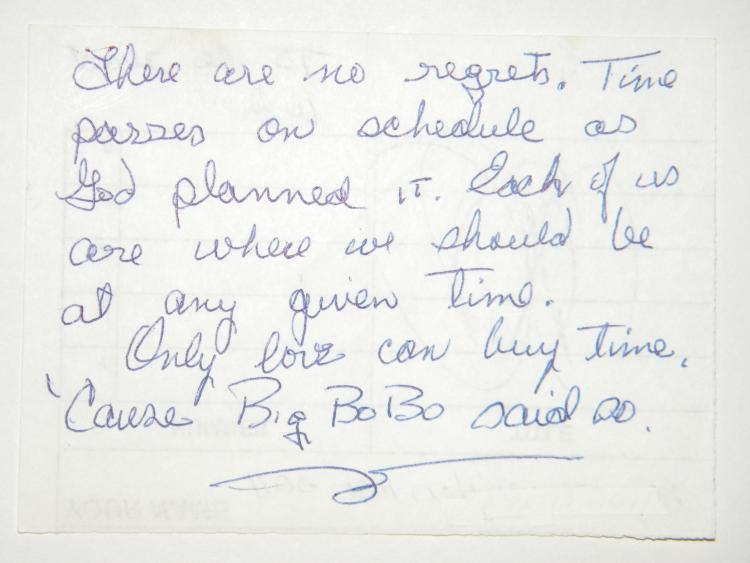 There are no regrets. Time
passes on schedule as
God planned it. Each of us
are where we should be
at any given time.
Only love can buy time,
'Cause Big BoBo said so.